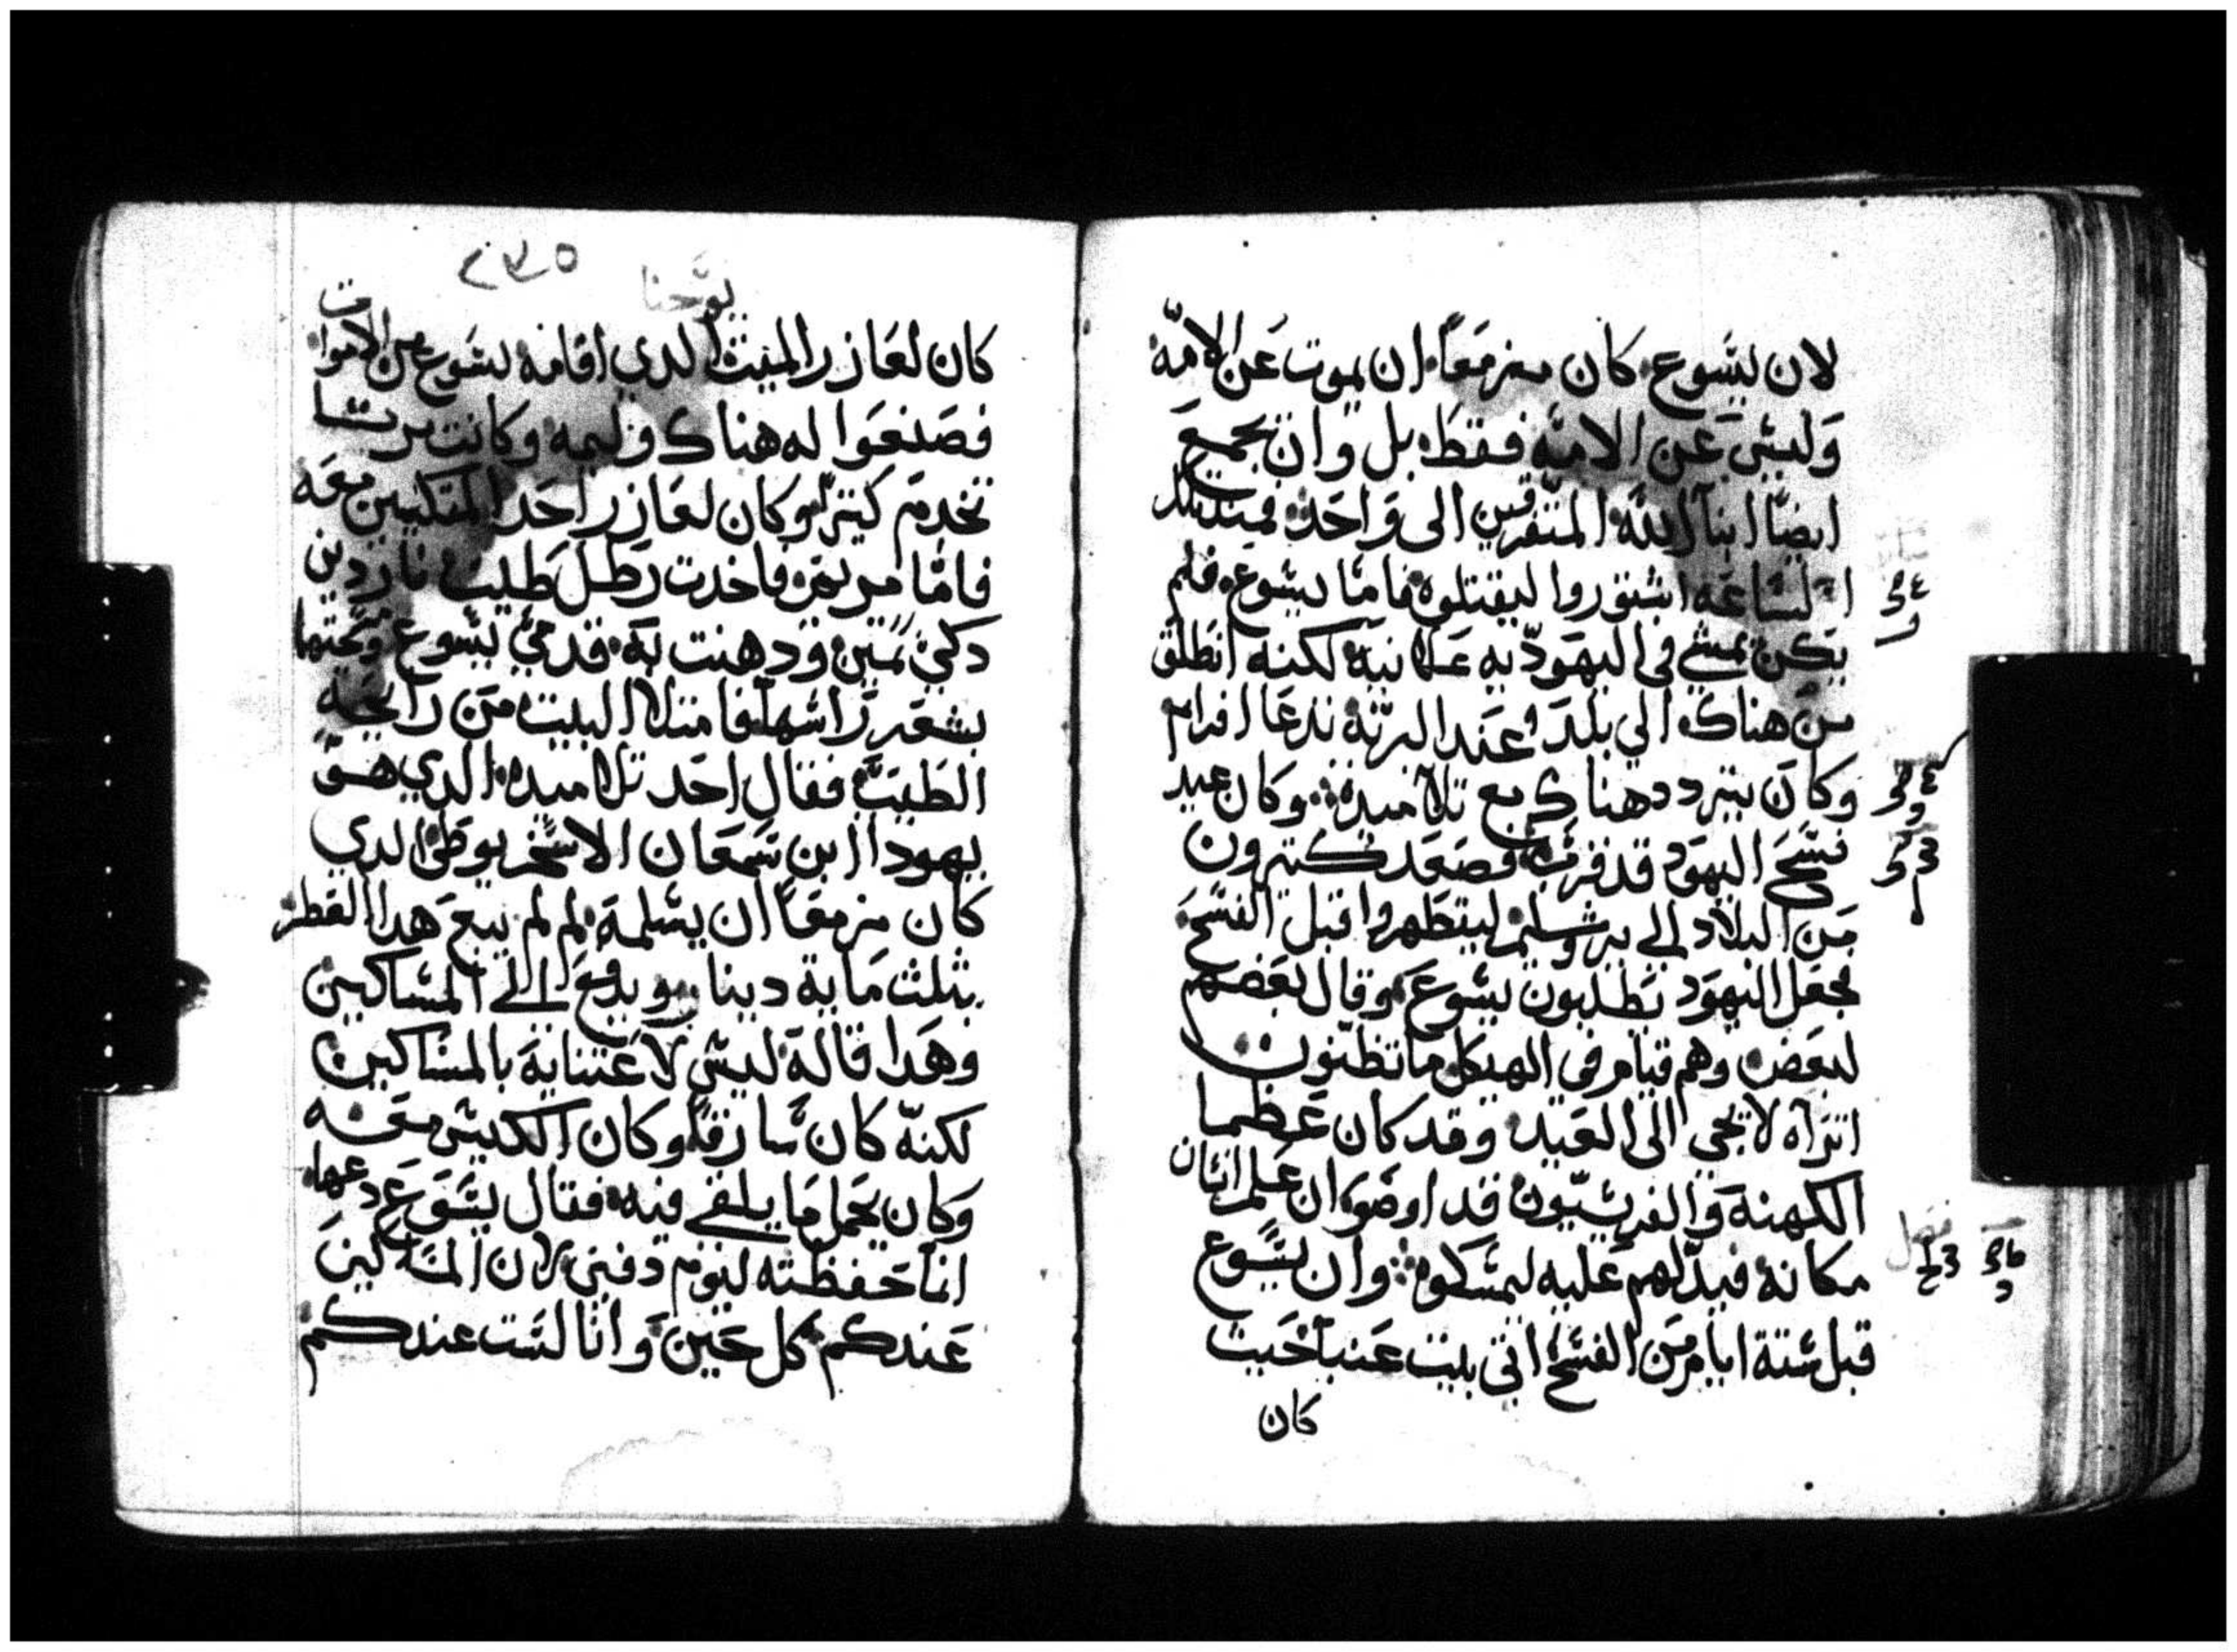 لان يسوع كان مزمعاً ان يموت عن الامّة
وليس عن الامة فقط بل وان يجمع
ايضًا ابنا الله المتفرقين الى واحد فمند تلك
الساعه استوروا ليقتلوه فاما يسوع فلم
يكن يمشي في اليهوديه علانية لكنه انطلق
من هناك الي بلد عند البرية تدعا افرام
وكان يتردد هناك مع تلاميده وكان عيد
فسح اليهود قد قرب فصعد كتيرون
من البلاد الى يروشليم ليتطهروا قبل الفسح
فجعل اليهود يطلبون يسوع وقال بعضهم
لبعض وهم قيام في الهيكل ما تظنون
اتراه لا يجي الى العيد وقد كان عظما
الكهنة والفريسيون قد اوصوا ان علم انسان
مكانه فيدلهم عليه ليمسكوه وان يسوع
فصل
قبل ستة ايام من الفسح اتي بيت عنيا حيت
كان
يوحنا
كان لعازر الميت الدي اقامه يسوع من الاموات
فصنعوا له هناك وليمه وكانت مرتا
تخدم كتيرًا وكان لعازر احد المتكيين معه
فامّا مريم فاخدت رطل طيب ناردين
دكي تمين ودهنت به قدمي يسوع ومسحتهما
بشعر راسها فامتلا البيت من رايحة
الطيب فقال احد تلاميده الدي هو
يهودا ابن سمعان الاسخريوطي الدي
كان مزمعاً ان يسلمه لم لم يبع هدا العطر
بتلت ماية دينار ويدفع الى المساكين
وهدا قاله ليس لاعتنايه بالمساكين
لكنّه كان سارقاً وكان الكيس معه
وكان يحمل ما يلقي فيه فقال يسوع دعها
انما حفظته ليوم دفني لان المساكين
عندكم كل حين وانا لست عندكم